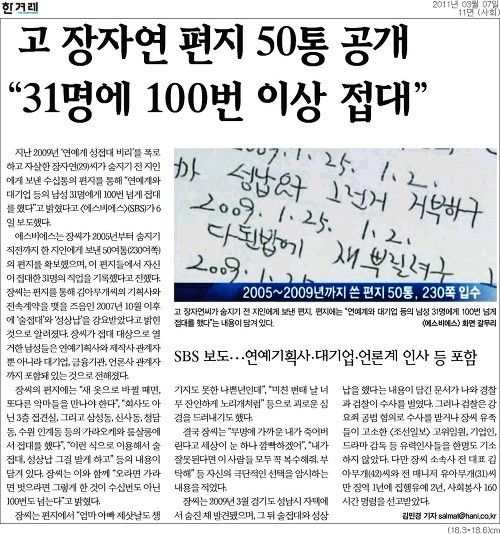 한겨레
2011년 03월 07일
11면 (사회)
고 장자연 편지 50통 공개
“31명에 100번 이상 접대”
지난 2009년 ‘연예계 성접대 비리’를 폭로
하고 자살한 장자연(29)씨가 숨지기 전 지인
에게 보낸 수십통의 편지를 통해 “연예계와
대기업 등의 남성 31명에게 100번 넘게 접대
를 했다”고 밝혔다고 <에스비에스>(SBS)가 6
일 보도했다.
에스비에스는 장씨가 2005년부터 숨지기
직전까지 한 지인에게 보낸 50여통(230여쪽)
의 편지를 확보했으며, 이 편지들에서 자신
이 접대한 31명의 직업을 기록했다고 전했다.
장씨는 편지를 통해 김아무개씨의 기획사와
전속계약을 맺을 즈음인 2007년 10월 이후
에 ‘술접대’와 ‘성상납’을 강요받았다고 밝힌
것으로 알려졌다. 장씨가 접대 대상으로 열
거한 남성들은 연예기획사와 제작사 관계자
뿐 아니라 대기업, 금융기관, 언론사 관계자
까지 포함돼 있는 것으로 전해졌다.
장씨의 편지에는 “새 옷으로 바뀔 때면,
또다른 악마들을 만나야 한다”, “회사도 아
닌 3층 접견실, 그리고 삼성동, 신사동, 청담
동, 수원 인계동 등의 가라오케와 룸살롱에
서 접대를 했다”, “이런 식으로 이용해서 술
접대, 성상납 그걸 받게 하고” 등의 내용이
담겨 있다. 장씨는 이와 함께 “오라면 가라
면 벗으라면 그렇게 한 것이 수십번도 아닌
100번도 넘는다”고 밝혔다.
장씨는 편지에서 “엄마 아빠 제삿날도 챙
2009. 1. 25. 1. 2.
2009. 1. 25. 1. 2.
2005~2009년까지 쓴 편지 50통, 230쪽 입수
고 장자연씨가 숨지기 전 지인에게 보낸 편지. 편지에는 “연예계와 대기업 등의 남성 31명에게 100번 넘게
접대를 했다”는 내용이 담겨 있다.
<에스비에스> 화면 갈무리
SBS 보도…연예기획사·대기업·언론계 인사 등 포함
기지도 못한 나쁜년인데”, “미친 변태 날 너
무 잔인하게 노리개처럼” 등으로 괴로운 심
경을 드러내기도 했다.
결국 장씨는 “무명에 가까운 내가 죽어버
린다고 세상이 눈 하나 깜빡하겠어”, “내가
잘못된다면 이 사람들 모두 꼭 복수해줘. 부
탁해” 등 자신의 극단적인 선택을 암시하는
내용을 적었다.
장씨는 2009년 3월 경기도 성남시 자택에
서 숨진 채 발견됐으며, 그 뒤 술접대와 성상
납을 했다는 내용이 담긴 문서가 나와 경찰
과 검찰이 수사를 벌였다. 그러나 검찰은 강
요죄 공범 혐의로 수사를 받거나 장씨 유족
들이 고소한 <조선일보> 고위임원, 기업인,
드라마 감독 등 유력인사들을 한명도 기소
하지 않았다. 다만 장씨 소속사 전 대표 김아
무개(42)씨와 전 매니저 유아무개(31)씨
만 징역 1년에 집행유예 2년, 사회봉사 160
시간 명령을 선고받았다.
김민경 기자 salmat@hani.co.kr
(18.3×18.6)cm